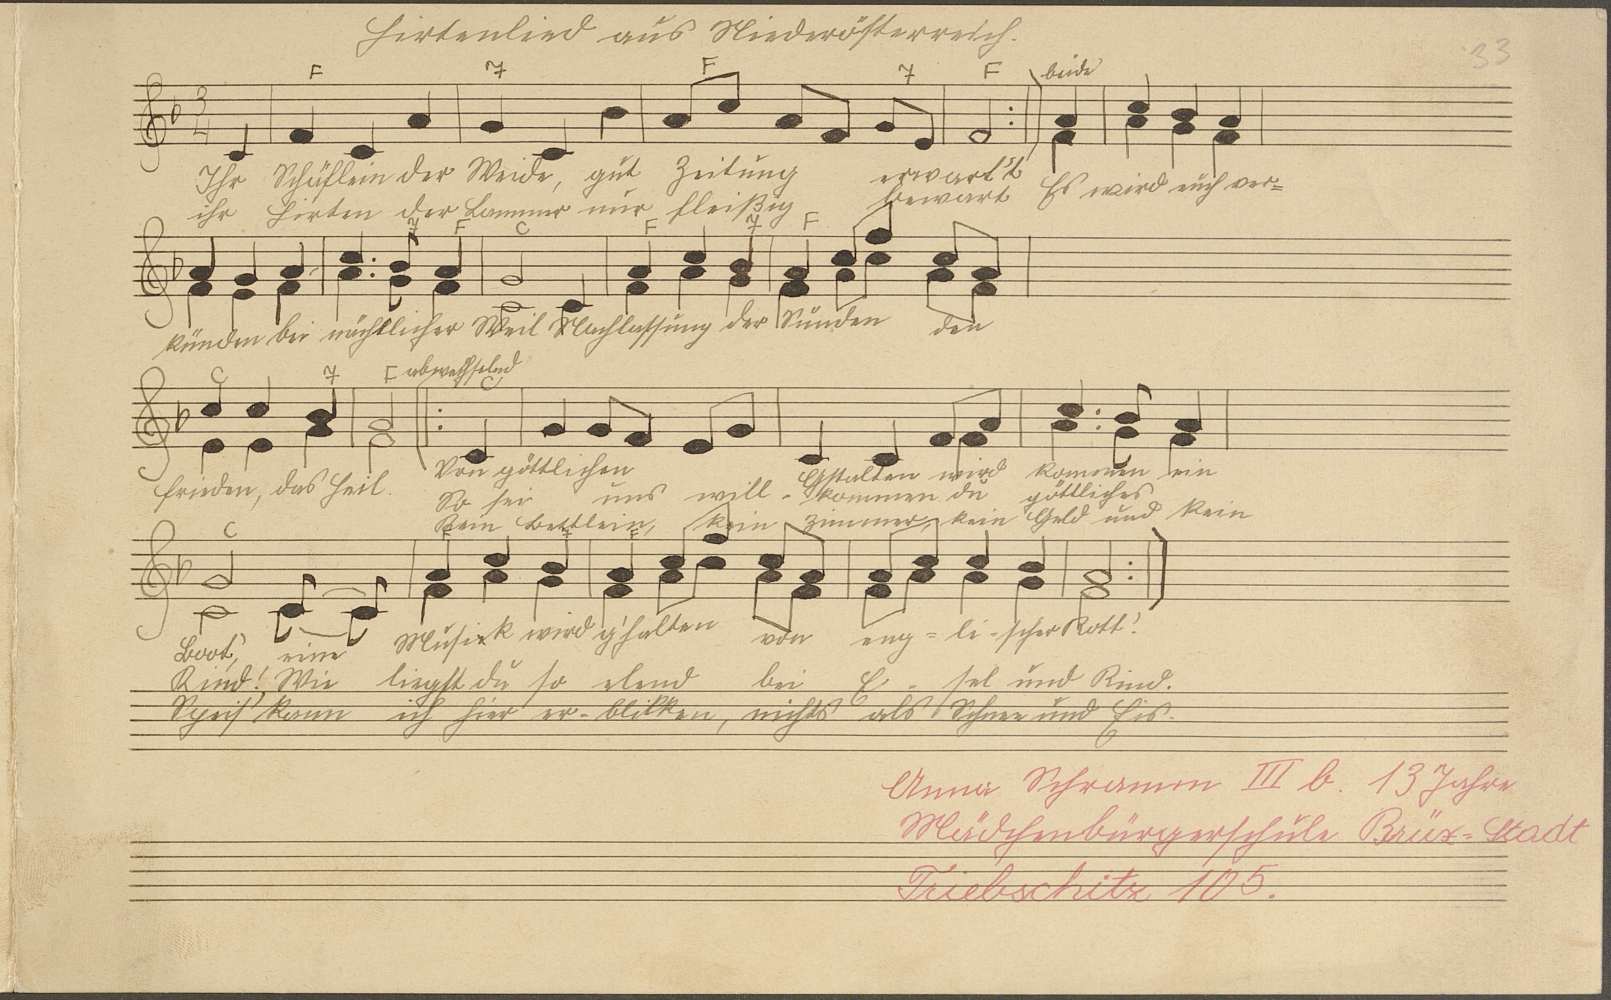 Hirtenlied aus Niederösterreich.
33
F 7 F 7 F beide
3 4
Ihr Schäflein der Weide, gut Zeitung erwart't Es wird euch ver=
ihr Hirten der Lammer nur fleißig bewart
7 F C F 7 F
künden bei nächtlicher Weil Nachlassung der Sünden den
C 7 F abwechselnd C
frieden, das Heil. Von göttlichen Gstalten wird kommen ein
So sei uns will-kommen du göttliches
Kein Bettlein, kein Zimmer, kein Geld und kein
C F 7 F
Bot', eine Musik wird g'halten von eng-li-scher Rott'.
Kind! Wie liegst du so elend bei E-sel und Rind.
Speis' kann ich hier er-blikken, nichts als Schnee und Eis.
Anna Schramm III b. 13 Jahre
Mädchenbürgerschule Brüx=Stadt
Triebschitz 105.